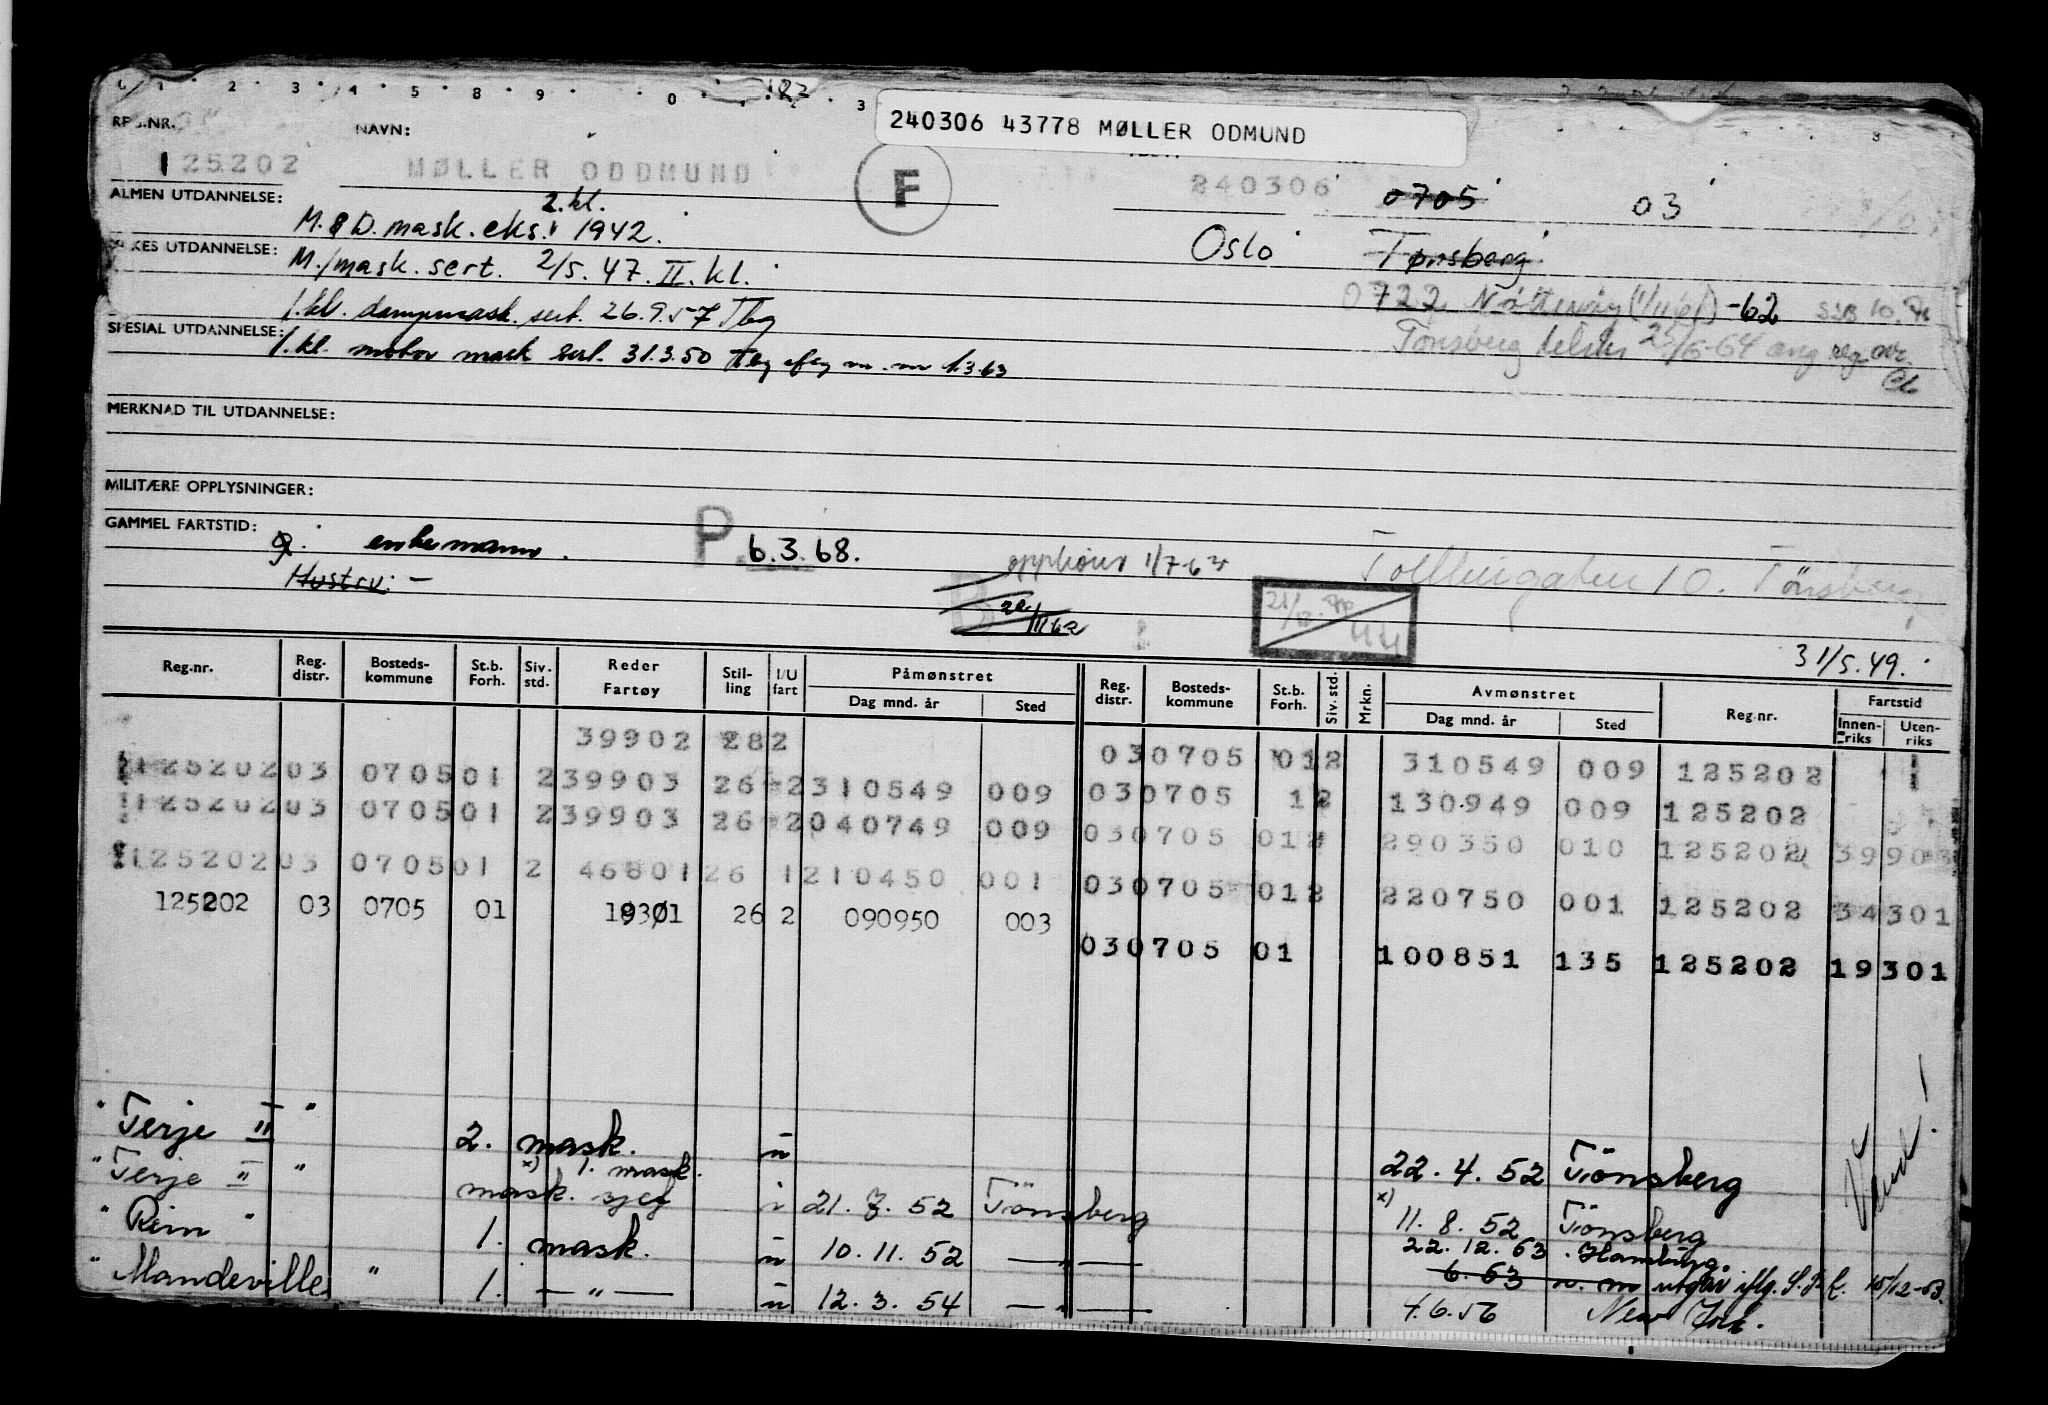 1 2 3 4 5 8 9 0 3
240306 43778 MØLLER ODMUND
REG.NR. NAVN:
125202 MØLLER ODDMUND F 240306 0705 03
ALMEN UTDANNELSE: M. & D. mask. eks. 2. kl. 1942. Oslo Tønsberg
YRKES UTDANNELSE: M./mask. sert. 2/5. 47. II. kl.
0722 Nøtterøy (1/1161) -62
1. kl. dampmask. sert. 26.9.57 Tbg
SPESIAL UTDANNELSE: 1. kl. motor mask sert. 31.3.50 Tbg
Tønsberg 25/6-64 ang reg nr.
MERKNAD TIL UTDANNELSE:
MILITÆRE OPPLYSNINGER:
GAMMEL FARTSTID:
g. enkemann. P. 6.3.68. opphører 1/7-63 10. Tönsberg
Hustru: —
31/5.49.
Reg.nr. Reg. distr. Bosteds- kommune St.b. Forh. Siv. std. Reder Fartøy Stil- ling I/U fart Påmønstret Dag mnd. år Sted Reg. distr. Bosteds- kommune St.b. Forh. Siv. std. Mrkn. Avmønstret Dag mnd. år Sted Reg.nr. Fartstid Innen- riks Uten- riks
39902 282 030705 012 310549 009 125202
125202 03 0705 01 2 39903 26 2 310549 009 030705 12 130949 009 125202
125202 03 0705 01 2 39903 26 2 040749 009 030705 012 290350 010 125202 39903
125202 03 0705 01 2 46801 26 1 210450 001 030705 012 220750 001 125202 34301
125202 03 0705 01 19301 26 2 090950 003 030705 01 100851 135 125202 19301
" Terje II " 2. mask. u 22. 4. 52 Tönsberg
" Terje II " x) 1. mask. mask. i 21. 7. 52 Tönsberg x) 11. 8. 52 Tönsberg
" Rein " 1. mask. u 10. 11. 52 — " — 22. 12. 53 Hamburg.
6. 53 utgår iflg. 10/12-53.
" Mandeville " 1. — " — u 12. 3. 54 — " — 4.6.56 New York.